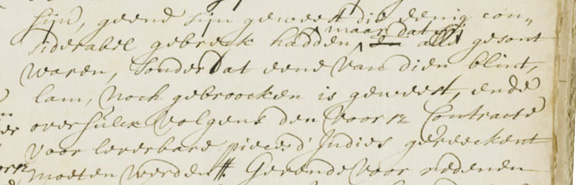 sijn, geene sijn geweest die eenig con„
maar dat
siderabel gebreck hadden, alle gesont
waren, sonder dat eene van dien blint,
lam, noch gebroocken is geweest, ende
oversulcx volgens den voorsz Contracte
voor leverbare pieces d' Indies gereeckent
moeten werden. Gevende voor redenen